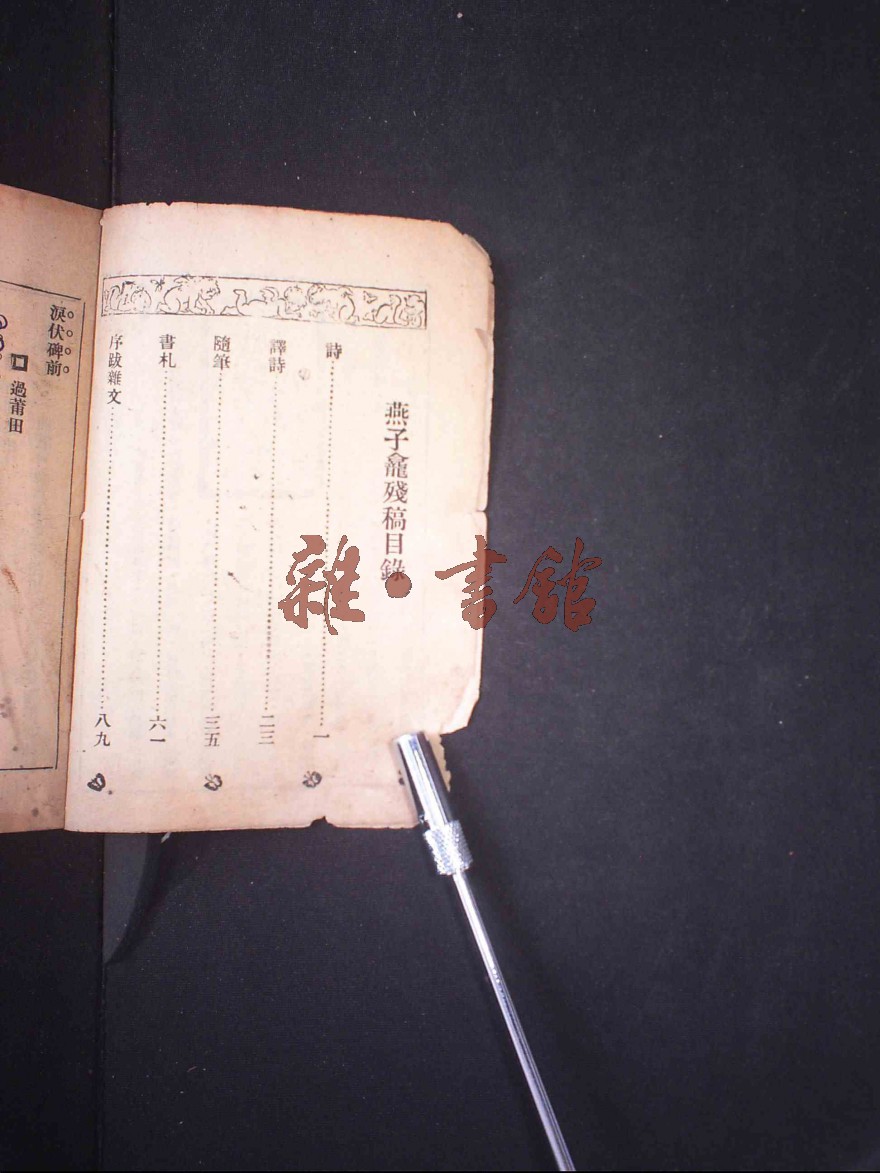 燕子龕殘稿目錄
詩……一
譯詩……二三
隨筆……三五
書札……六一
序跋雜文……八九
淚伏碑前
過莆田
雜·書館